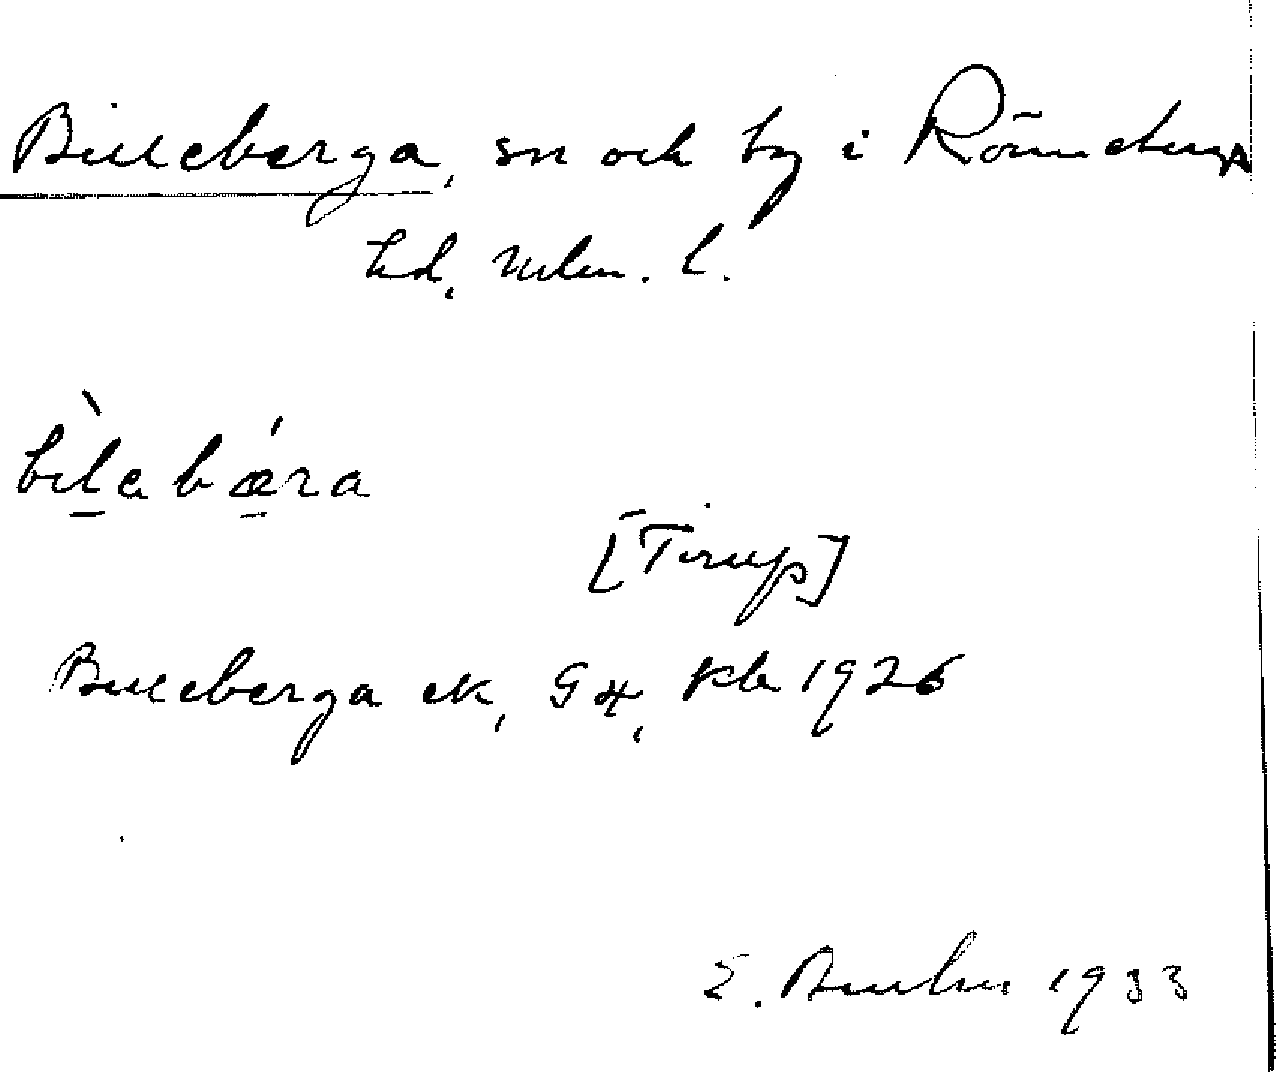 Billeberga, sn och by i Rönnebergs
hd, Mlm. l.
bìlabǽra
[Tirup]
Billeberga ek, G4, Kb 1926
E. 1933